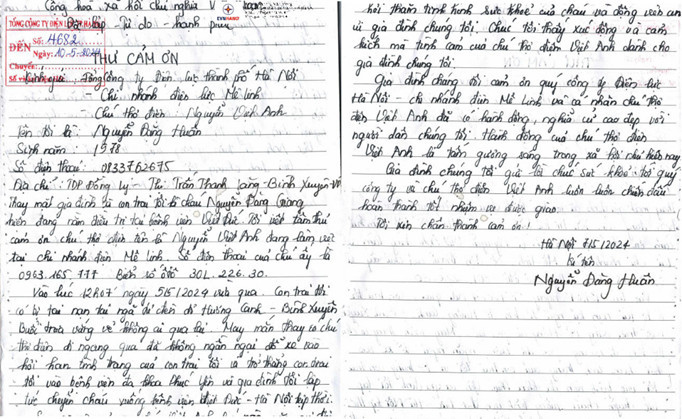 Cộng hoà xã hội chủ nghĩa V
Độc lập Tự do - hạnh phúc
EVNHANOI
TỔNG CÔNG TY ĐIỆN LỰC
ĐẾN
Số: 4682
Ngày: 10-5-2024
Chuyển:
THƯ CẢM ƠN
Kính gửi: Tổng Công ty Điện lực thành phố Hà Nội
- Chi nhánh điện lực Mê linh.
- Chú thợ điện: Nguyễn Việt Anh
Tên tôi là: Nguyễn Đăng Huấn
Sinh năm: 1978
Số điện thoại: 0833762675
Địa chỉ: TDP Đồng Lý - Thị Trấn Thanh Lãng - Bình Xuyên - VP
Thay mặt gia đình là con trai tôi là cháu Nguyễn Đăng Giang
hiện đang nằm điều trị tại bệnh viện Việt Đức. Tôi viết tâm thư
cảm ơn chú thợ điện tên là Nguyễn Việt Anh đang làm việc
tại chi nhánh điện Mê linh. Số điện thoại của chú ấy là
0963.165.777 Biển số ôtô 30L.226.30.
Vào lúc 12h07 ngày 5/5/2024 vừa qua. Con trai tôi
có bị tai nạn tại ngã đi chèn đi Hương Canh - Bình Xuyên
Buổi trưa vắng vẻ không ai qua lại. May mắn thay có chú
thợ điện đi ngang qua đã không ngần ngại đỗ xe vào
hỏi han tình trạng của con trai tôi và trở thẳng con trai
tôi vào bệnh viện đa khoa Phúc Yên và gia đình tôi lập
tức chuyển cháu xuống bệnh viện Việt Đức - Hà Nội kịp thời.
hỏi thăm tình hình sức khoẻ của cháu và động viên an
ủi gia đình chúng tôi. Chúc tôi thấy xúc động và cảm
kích mà tình cảm của chú thợ điện Việt Anh dành cho
gia đình chúng tôi.
Gia đình chúng tôi cảm ơn quý công ty Điện lực
Hà Nội - chi nhánh điện Mê Linh và cá nhân chú thợ
điện Việt Anh đã có hành động, nghĩa cử cao đẹp với
người dân chúng tôi. Hành động của chú thợ điện
Việt Anh là tấm gương sáng trong xã hội như hiện nay
Gia đình chúng tôi gửi lời chúc sức khoẻ tới quý
công ty và chú thợ điện Việt Anh luôn luôn chiến đấu
hoàn thành tốt nhiệm vụ được giao.
Tôi xin chân thành cảm ơn!
Hà Nội 7/5/2024
Kí tên
Nguyễn Đăng Huấn